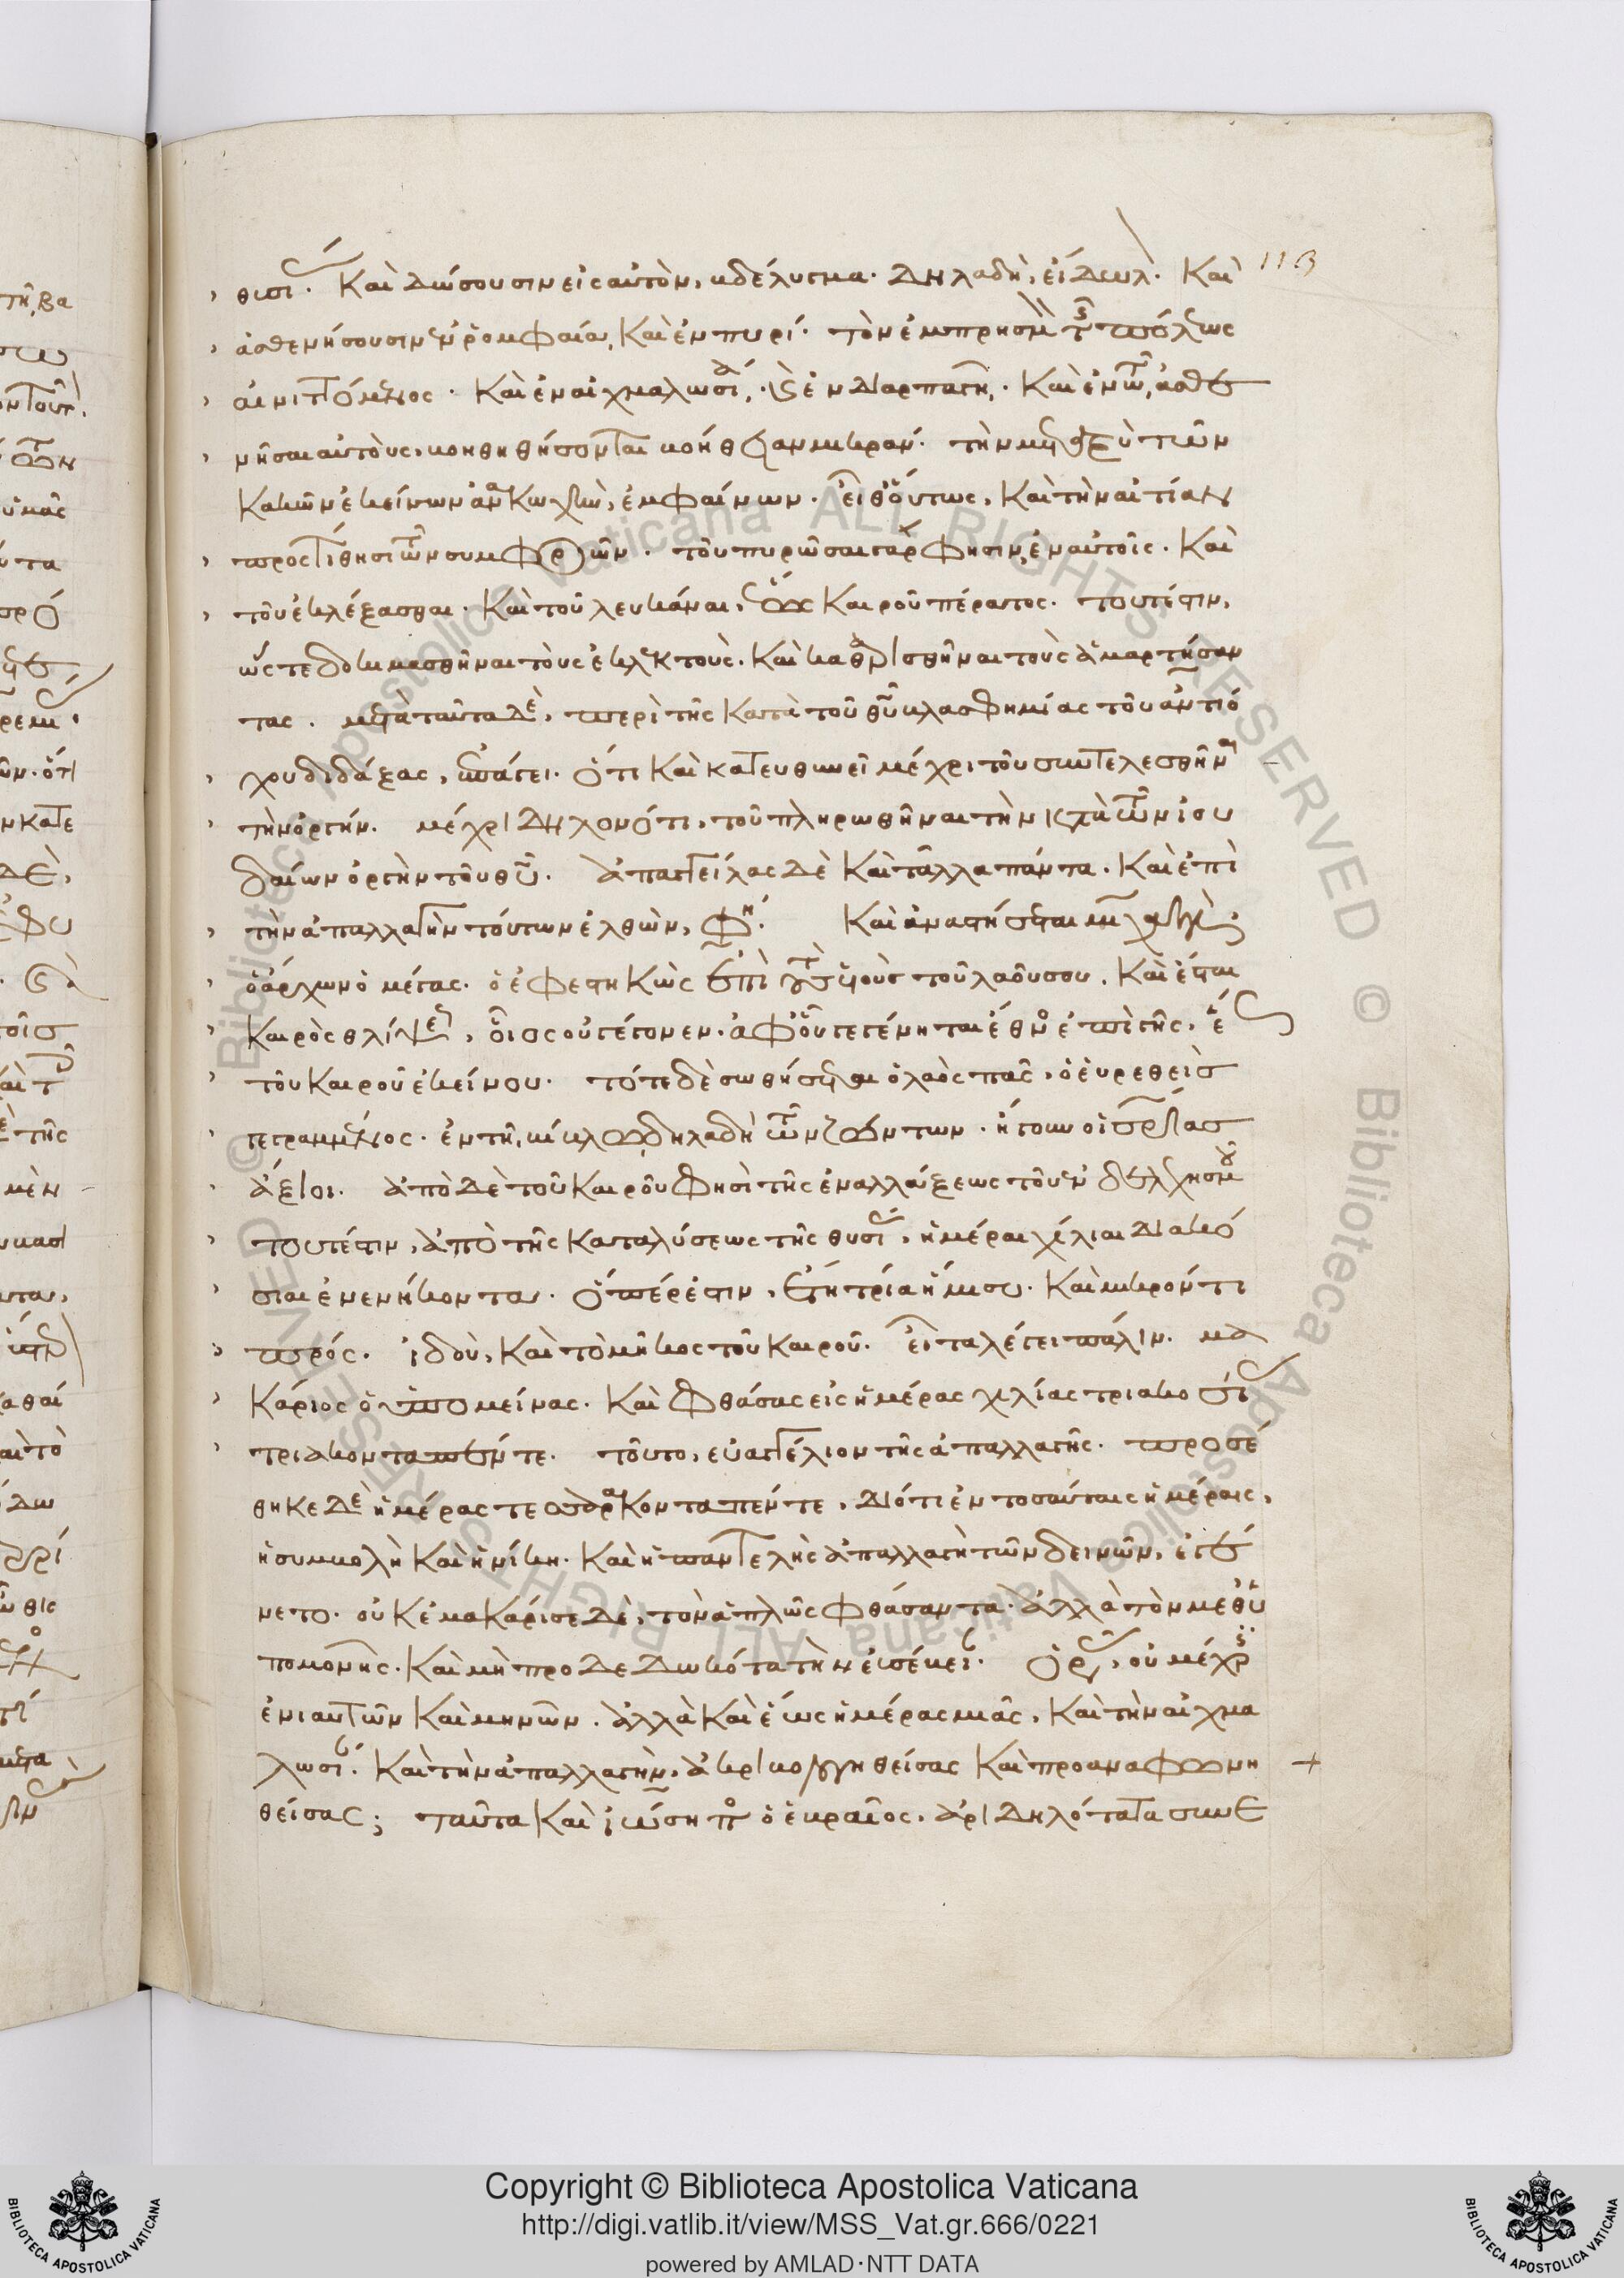 113
θυσί. Καὶ δώσουσιν εἰς αὐτὸν, βδέλυγμα. δηλαδὴ, εἴδωλ. Καὶ
ἀσθενήσουσιν ἐν ῥομφαία, Καὶ ἐν πυρί. τὸν ἐμπρησμ τ πόλεως
αἰνιττόμενος. Καὶ ἐν αἰχμαλωσί, καὶ ἐν διαρπαγῆ. Καὶ ἐν τῶ, ἀσθε
νῆσαι αὐτοὺς, βοηθηθήσονται βοήθειαν μικράν. τὴν μεταξὺ τῶν
Κακῶν ἐκείνων ἀνακωχὴν, ἐμφαίνων. εἶθ οὕτως, Καὶ τὴν αἰτίαν
προστίθησι τῶν συμφορῶν. τοῦ πυρῶσαι γάρ φησιν, ἐν αὐτοῖς. Καὶ
τοῦ ἐκλέξασθαι. Καὶ τοῦ λευκάναι, ἕως Καιροῦ πέρατος. τουτέστιν,
ὥστε δοκιμασθῆναι τοὺς ἐκλεκτούς. Καὶ καθαρισθῆναι τοὺς ἁμαρτήσαν
τας. μετὰ ταῦτα δὲ, περὶ τῆς Κατὰ τοῦ θυ βλασφημίας τοῦ ἀντιό
χου διδάξας, ἐπάγει. ὅτι Καὶ κατευθυνεῖ μέχρι τοῦ συντελεσθῆναι
τὴν ὀργήν. μέχρι δηλονότι, τοῦ πληρωθῆναι τὴν κατὰ τῶν ἰου
δαίων ὀργὴν τοῦ θυ. ἀπαγγείλας δὲ Καὶ τἄλλα πάντα. Καὶ ἐπὶ
τὴν ἀπαλλαγὴν τούτων ἐλθὼν, φη. Καὶ ἀναστήσεται μιχαὴλ.
ὁ ἄρχων ὁ μέγας. ὁ ἐφεστηκὼς ἐπὶ τοὺς υἱοὺς τοῦ λαοῦ σου. Καὶ ἔσται
Καιρὸς θλίψε, οἵα οὐ γέγονεν. ἀφ οὗ γεγένηται ἔθνο ἐπὶ γῆς, ἕως
τοῦ Καιροῦ ἐκείνου. τότε δὲ σωθήσεται ὁ λαὸς πᾶς, ὁ εὑρεθεὶς
γεγραμμένος. ἐν τῆ, βίβλω, δηλαδὴ τῶν ζώντων. ἤγουν οἱ σρίας
ἄξιοι. ἀπὸ δὲ τοῦ Καιροῦ φησὶ τῆς ἐναλλάξεως τοῦ ἐνδελεχησμοῦ
τουτέστιν, ἀπὸ τῆς Καταλύσεως τῆς θυσί, ἡμέραι χίλιαι διακό
σιαι ἐνενήκοντα. ὅπερ ἐστιν, ἔτη τρία ἥμισυ. Καὶ μικρόν τι
πρός. ἰδοὺ, Καὶ τὸ μῆκος τοῦ Καιροῦ. εἶτα λέγει πάλιν. μα
Κάριος ὁ ὑπομείνας. Καὶ φθάσας εἰς ἡμέρας χιλίας τριακοσί
τριάκοντα πέντε. τοῦτο, εὐαγγέλιον τῆς ἀπαλλαγῆς. προσέ
θηκε δὲ ἡμέρας τεσσαράκοντα πέντε, διότι ἐν τοσαύταις ἡμέραις,
ἡ συμβολὴ Καὶ ἡ νίκη. Καὶ ἡ παντελὴς ἀπαλλαγὴ τῶν δεινῶν, ἐγέ
νετο. οὐκ ἐμακάρισε δὲ, τὸν ἁπλῶς φθάσαντα. ἀλλὰ τὸν μεθ ὑ
πομονῆς. Καὶ μὴ προδεδωκότα τὴν εὐσέβει. ὁρᾶς, οὐ μέχρις
ἐνιαυτῶν Καὶ μηνῶν. ἀλλὰ Καὶ ἕως ἡμέρας μιᾶς, Καὶ τὴν αἰχμα
λωσί. Καὶ τὴν ἀπαλλαγὴν, ἀκριβολογηθείσας Καὶ προαναφωνη +
θείσας; ταῦτα Καὶ ἰώσηπο ὁ ἑβραῖος, ἀριδηλότατα συνε
Copyright © Biblioteca Apostolica Vaticana
http://digi.vatlib.it/view/MSS_Vat.gr.666/0221
powered by AMLAD·NTT DATA
BIBLIOTECA APOSTOLICA VATICANA
BIBLIOTECA APOSTOLICA VATICANA